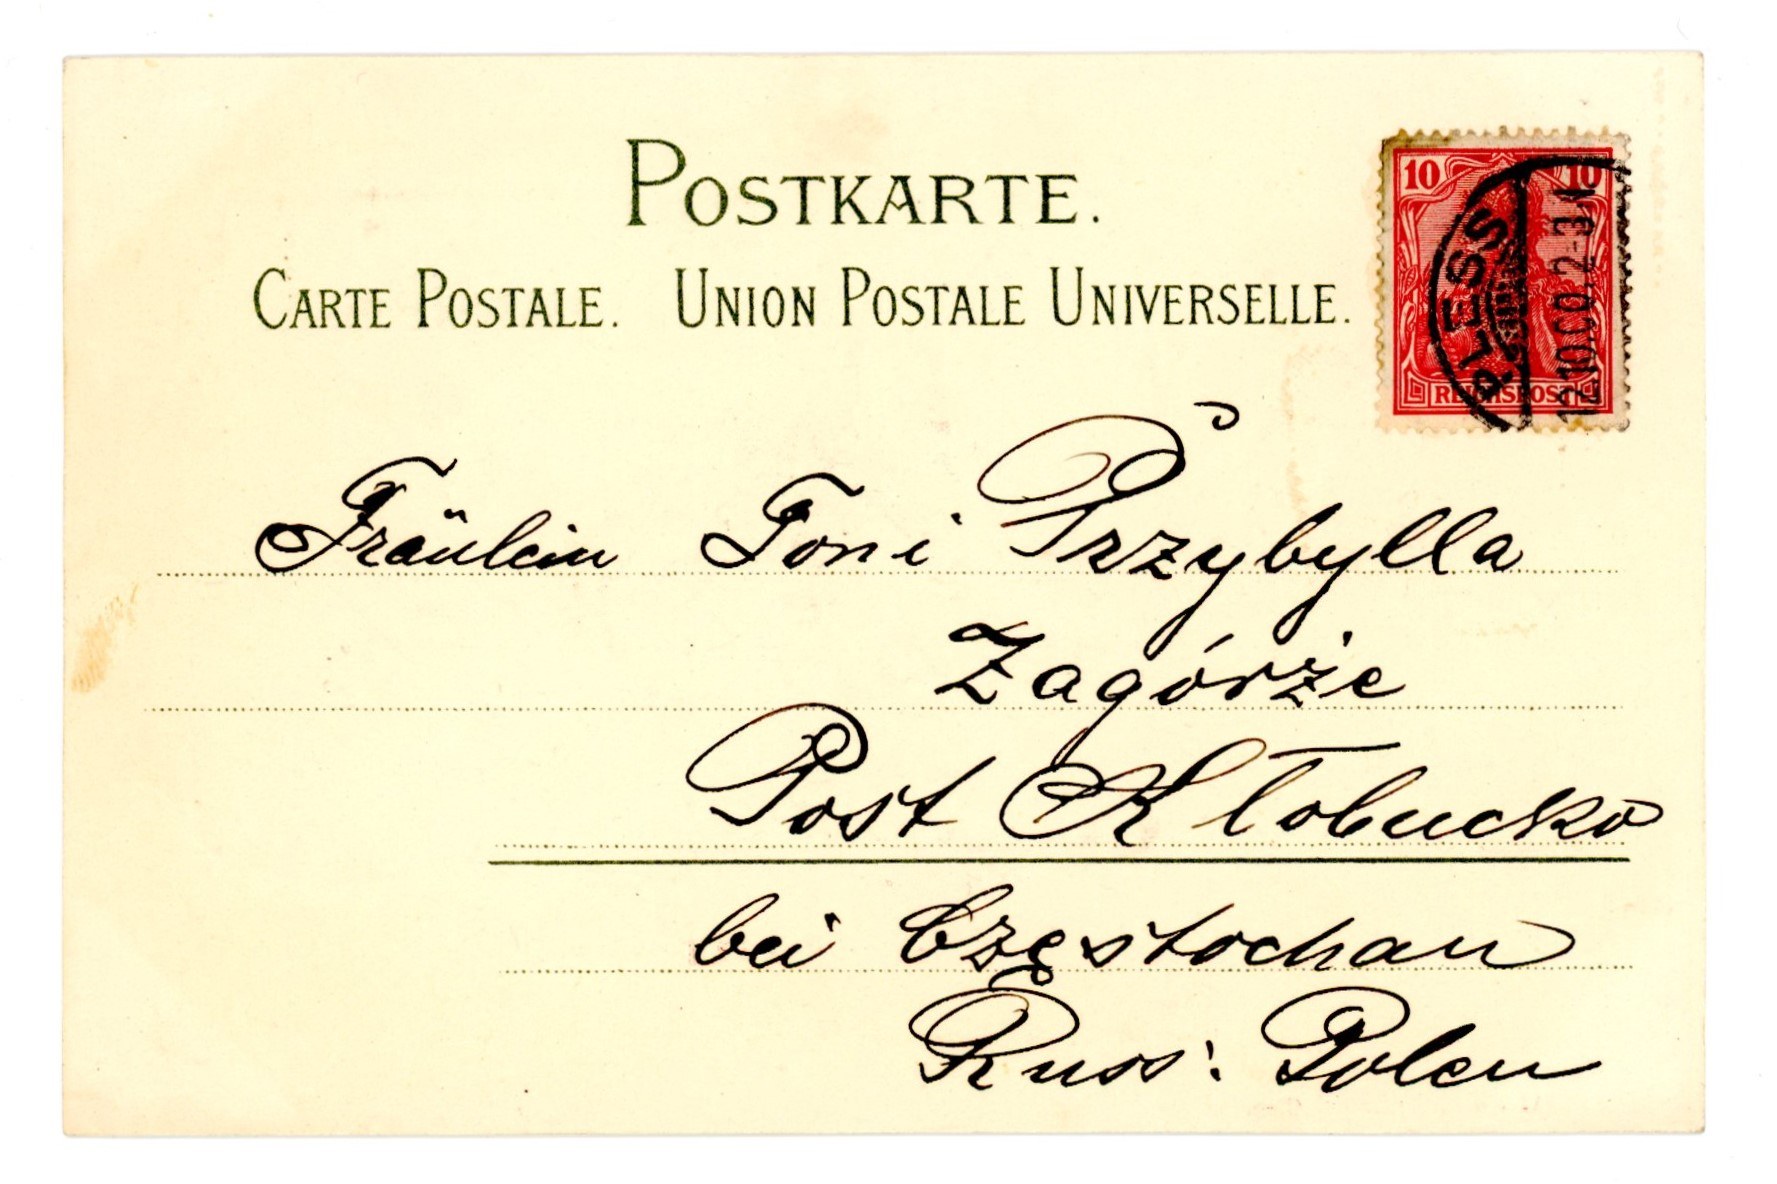 POSTKARTE.
CARTE POSTALE. UNION POSTALE UNIVERSELLE.
10 10
REICHSPOST
PLESS
12.10.00.2-3N
Fräulein Toni Przybylla
Zagórże
Post Kłobucko
bei Częstochau
Russ: Polen